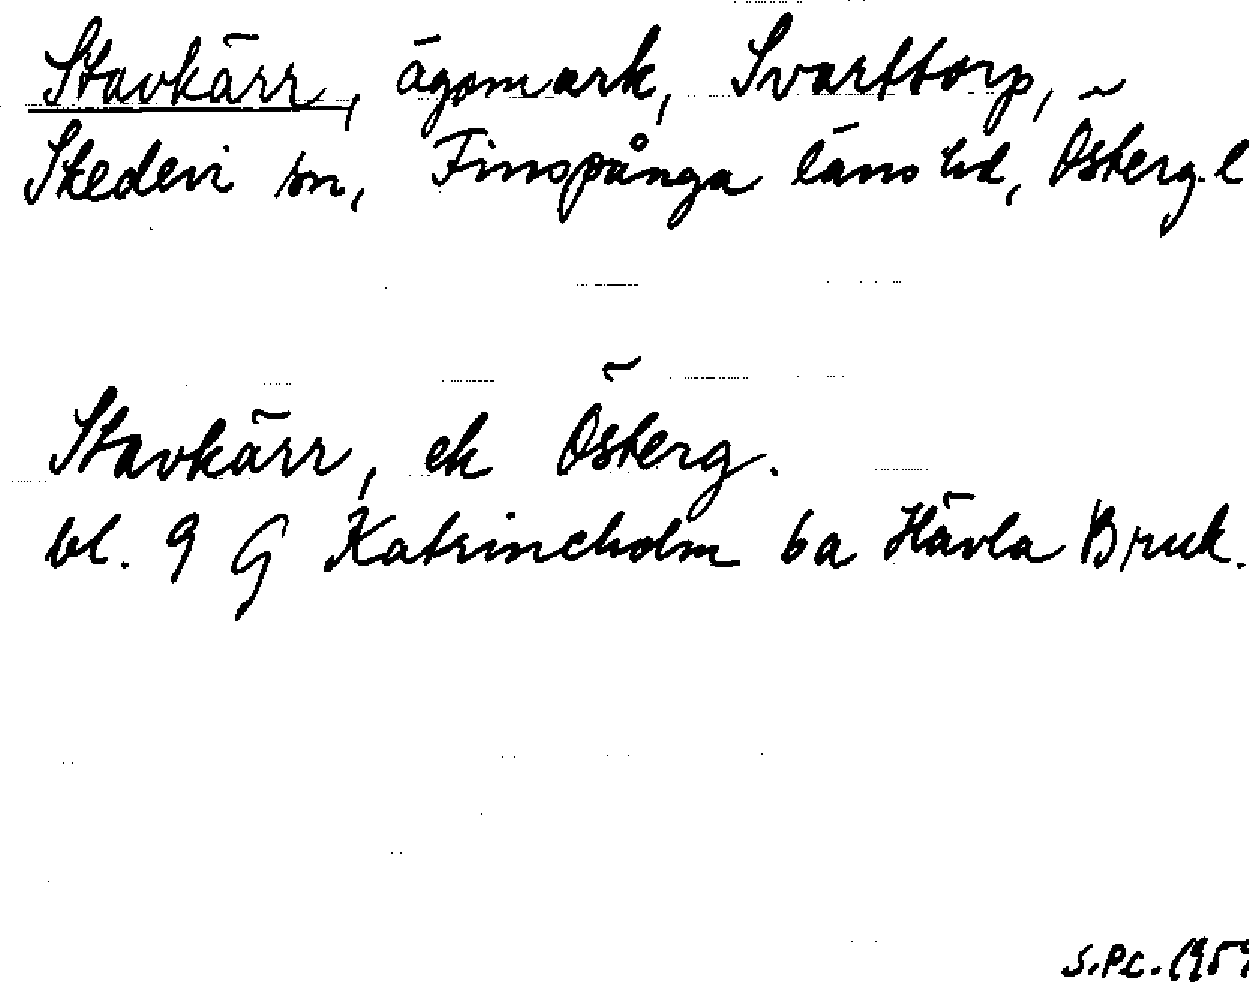 Stavkärr, ägomark, Svarttorp,
Skedevi sn, Finspånga läns hd, Österg. l
Stavkärr, ek Österg.
bl. 9 G Katrineholm 6a Hävla Bruk.
S.Pc. 1959